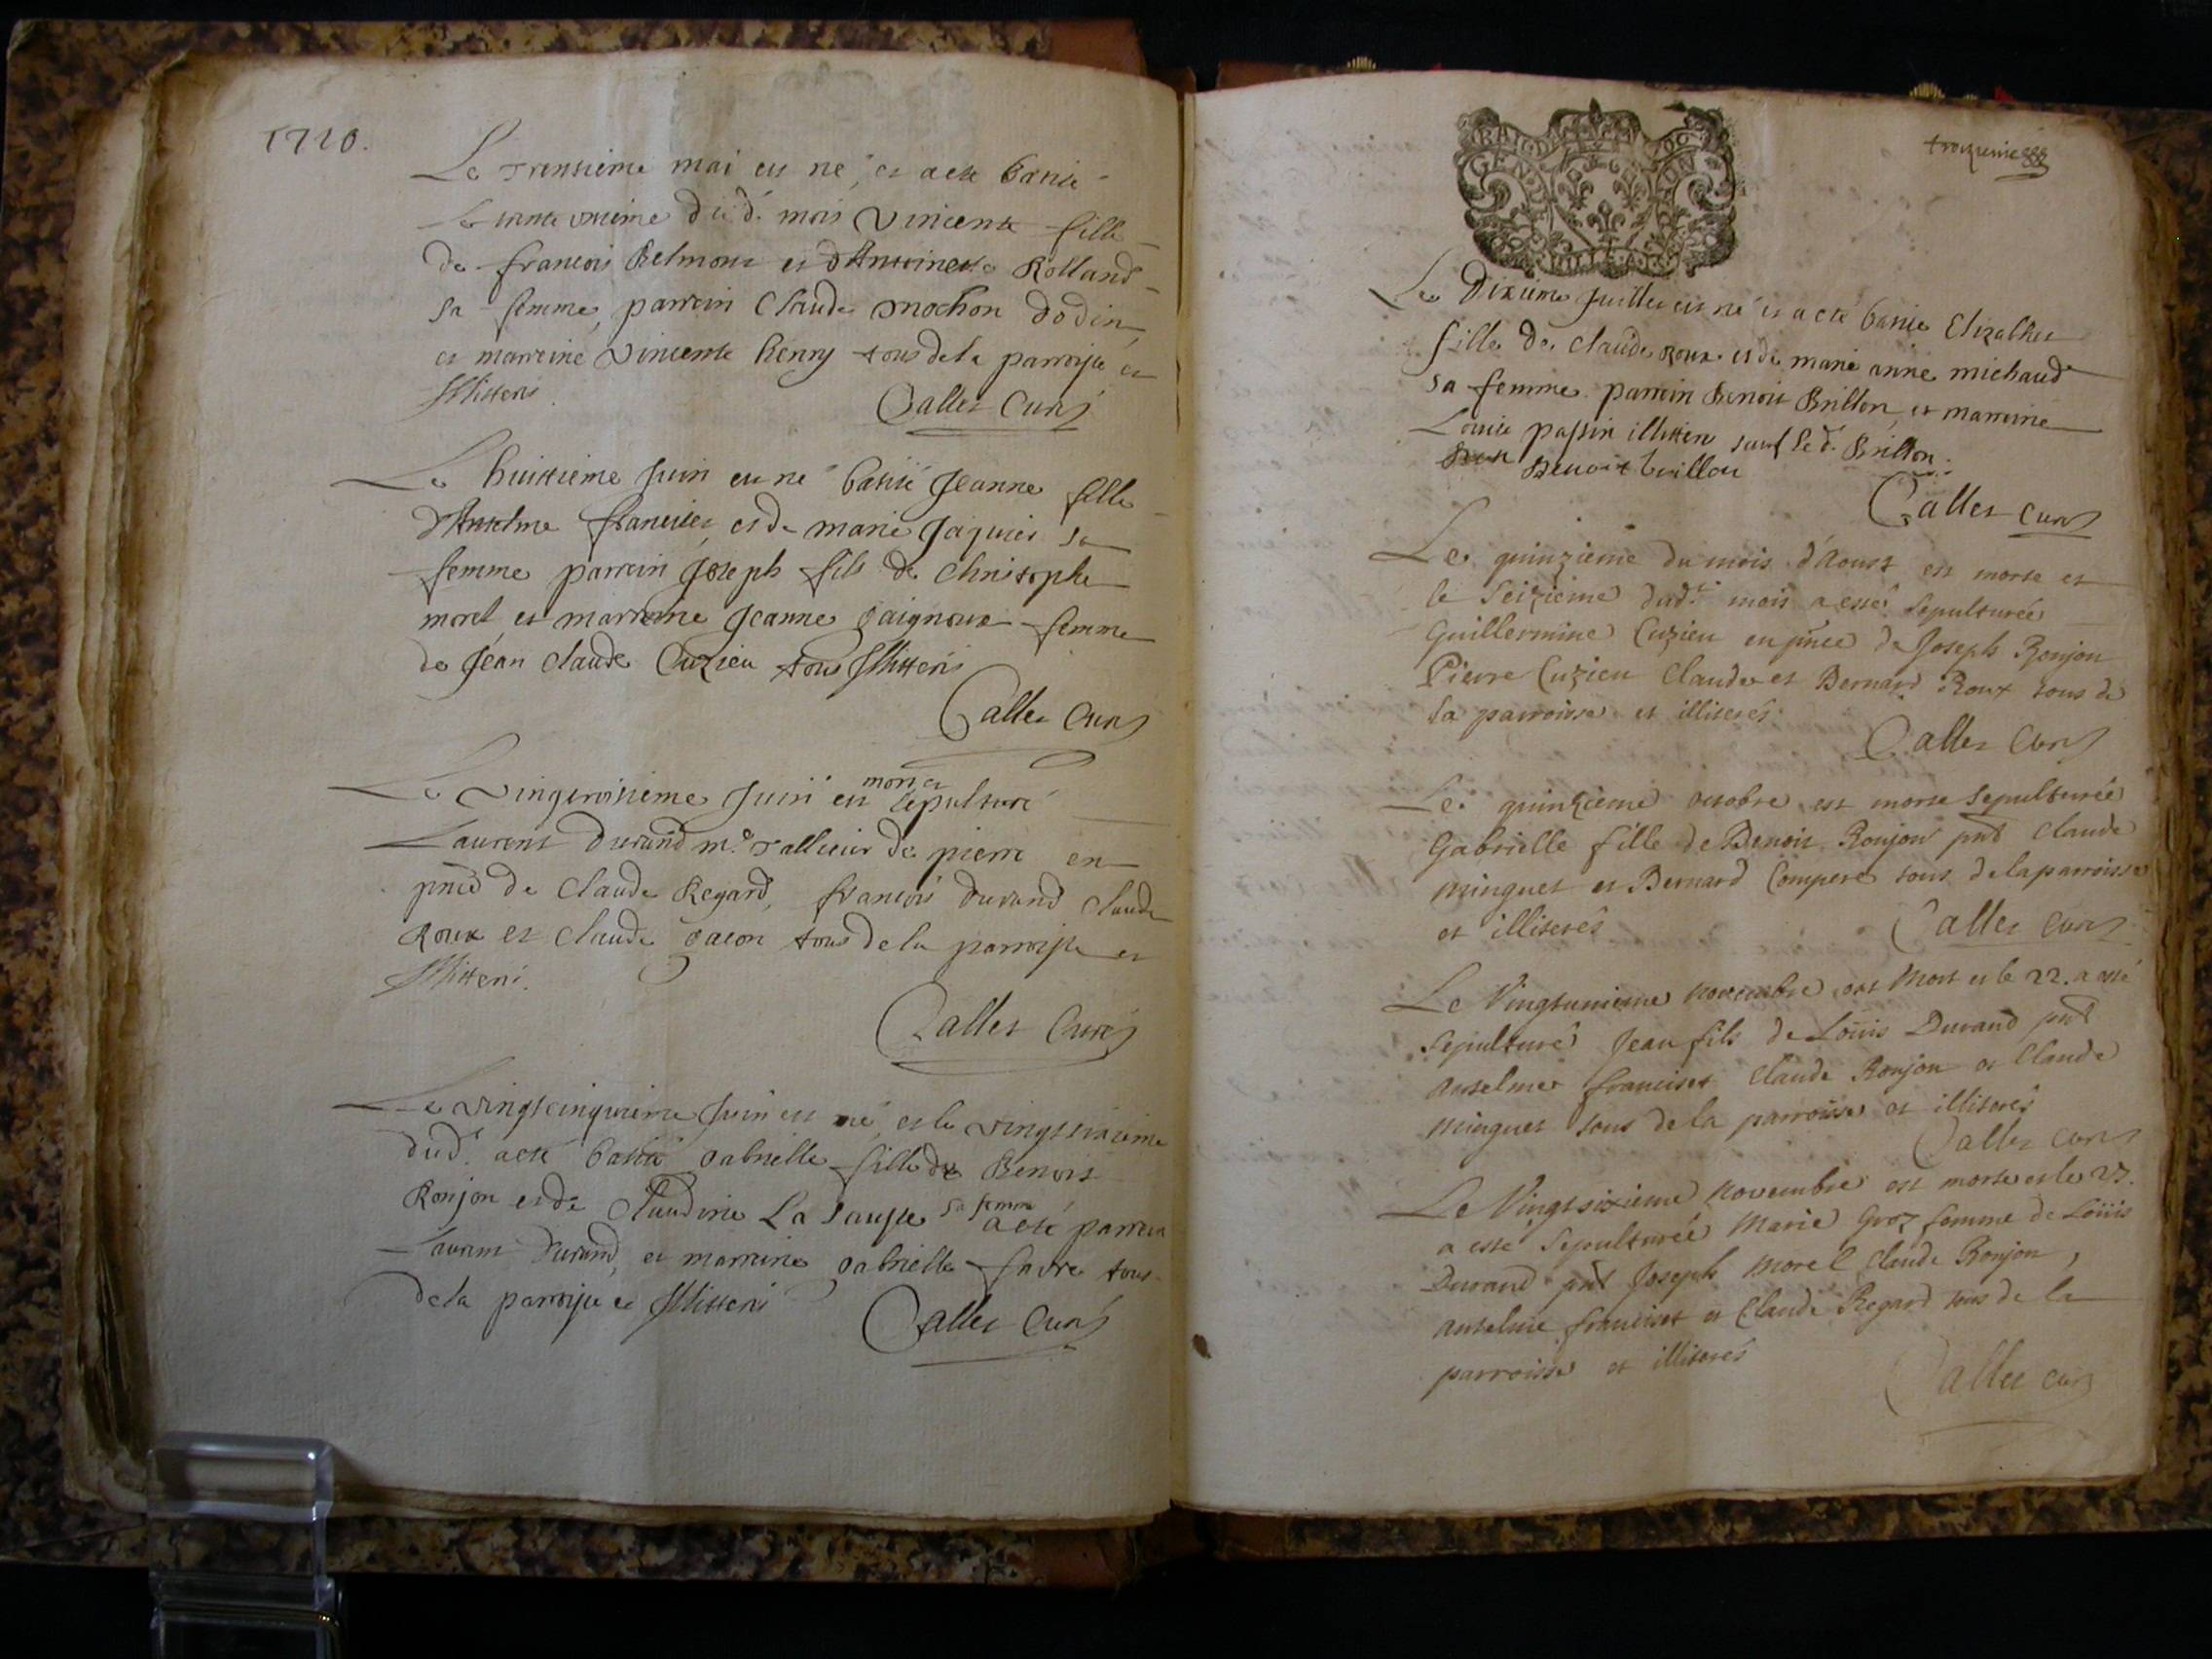 1710.
Le trentieme mai est né, et a esté batisé
le trente unieme dud. mois vincente fille
de francois Belmont et d'Antoinette Rolland
sa femme, parrein Claude mochon dodin
et marreine vincente henry tous de la parroisse et
Illitterés
Caller Curé
Le huittieme Juin est né batisé Jeanne fille
d'Anselme franciset, et de marie Jaquier sa
femme parrein Joseph fils de Christophe
morel et marreine Jeanne gaignoux femme
de Jean Claude Cuzieu tous Illitterés
Caller Curé
mort et
Le vingtroisieme Juin est sepulturé
Laurent Durand me. tallieur de pierre en
pnce de Claude Regard, francois durand Claude
Roux et Claude gacon tous de la parroisse et
Illitterés.
Caller Curé
Le vingtcinquieme Juin est né, et le vingtsixieme
dud. a esté batisé gabrielle fille de Benoit
Ronjon et de Claudine La Sausse sa femme a esté parrein
Laurent Durand, et marreine gabrielle favre tous
de la parroisse et Illitterés
Caller Curé
troizieme
GEN DE LION
Le Dixieme Juillet est né et a esté batisé Elizabhet
fille de claude roux et de marie anne michaud
sa femme parrein Benoit Brillon, et marreine
Louise passin illitteres sauf le d. Brillon.
Benoit brillon
Caller Curé
Le quinzieme du mois d'Aoust est morte et
le Seizieme dud.t mois a esté Sepulturée
Guillermine Cuzieu en pnce de Joseph Ronjon
Pierre Cuzieu Claude et Bernard Roux tous de
la parroisse et illiterés
Caller Curé
Le quinzieme octobre est morte Sepulturée
Gabrielle fille de Benoit Ronjon pnt Claude
minguet et Bernard Compere tous de la parroisse
et illiterés
Caller Curé
Le Vingtunieme Novembre est Mort et le 22. a esté
Sepulturé Jean fils de Loüis Durand pnt
Anselme franciset Claude Ronjon et Claude
minguet tous de la parroisse et illiterés
Caller Curé
Le Vingtsixieme novembre est morte et le 27.
a esté Sepulturée Marie Groz femme de Loüis
Durand pnt Joseph Morel Claude Ronjon,
Anselme franciset et Claude Regard tous de la
parroisse et illiterés
Caller Curé